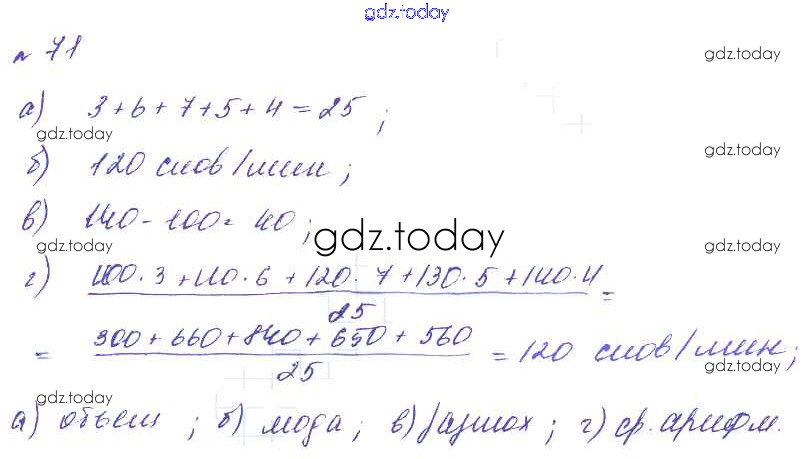 gdz.today
№ 71
gdz.today
а) 3+6+7+5+4=25;
gdz.today
б) 120 слов/мин;
gdz.today
в) 140-100=40;
gdz.today
г) 100·3+110·6+120·7+130·5+140·4 =
gdz.today
gdz.today
25
= 300+660+840+650+560 = 120 слов/мин;
25
gdz.today
gdz.today
а) объем; б) мода; в) размах; г) ср. арифм.